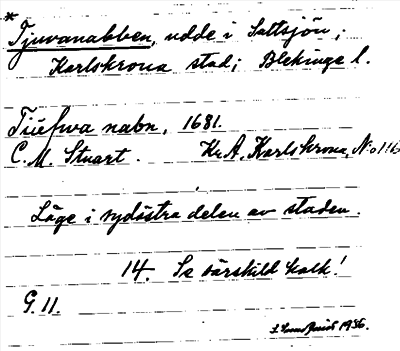 *
Tjuvanabben, udde i Saltsjön,
Karlskrona stad; Blekinge l.
Tiüfwa nabn, 1681.
C. M. Stuart. Kr A, Karlskrona, N:o 116
Läge i sydöstra delen av staden.
14. Se särskild kalk!
G. 11.
1936.